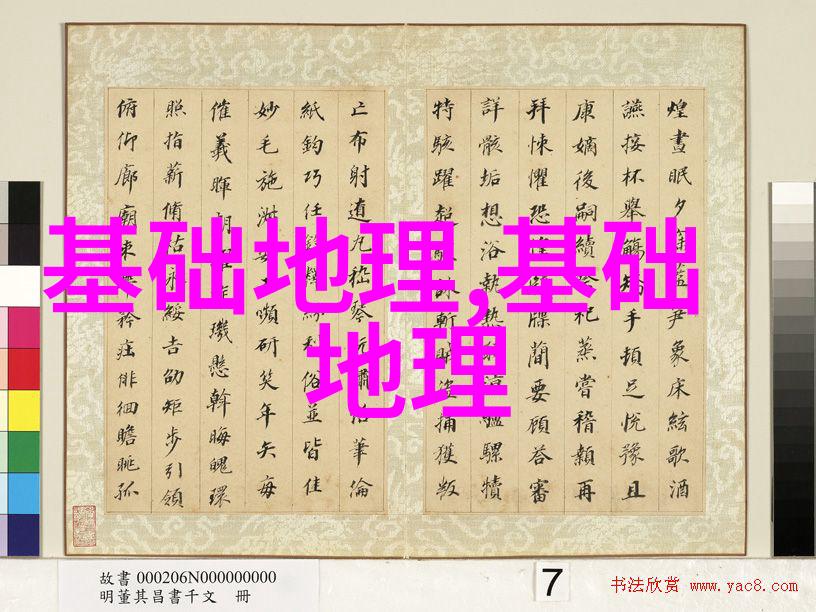 煌晝眠夕寐藍尹象床絃歌酒
讌接杯舉觴矯手頓足悅豫且
康嫡後嗣續祭祀蒸嘗稽顙再
拜悚懼恐牒簡要顧答審
詳骸垢想浴執熱涼驢騾犢
特駭躍超誅斬賊盜捕獲叛
亡布射遼丸嵇琴嘯恬筆倫
紙鈞巧任利俗並皆佳
妙毛施淑姿嚬研笑年矢每
催羲暉朗璣懸斡晦魄環
照指薪脩祜永綏吉劭矩步引領
俯仰廊廟束矜莊徘徊瞻眺孤
基础地理,基础
地理
故書 000206N000000000
明董其昌書千文 冊
7
书法欣赏 www.yac8.com